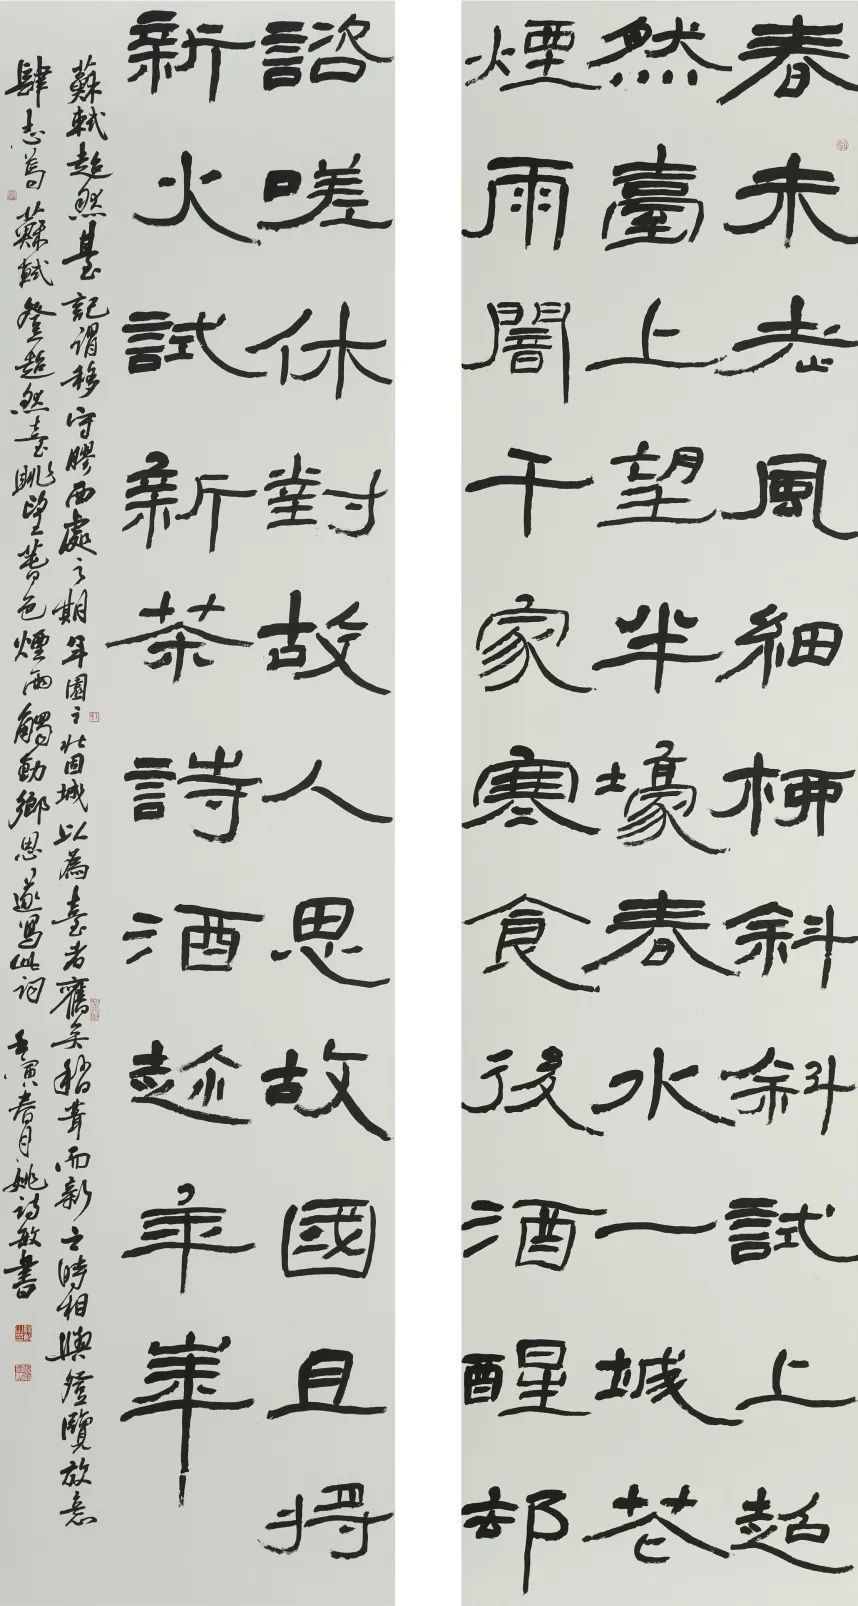 春未老風細柳斜斜試上超
然臺上望半壕春水一城花
煙雨闇千家寒食後酒醒却
諮嗟休對故人思故國且將
新火試新茶詩酒趂年華
蘇軾超然臺記謂移守膠西處之期年園之北因城以為臺者舊矣稍葺而新之時相與登覽放意
肆志焉蘇軾登超然臺眺望春色煙雨觸動鄉思遂寫此詞 壬寅春月姚詩敏書